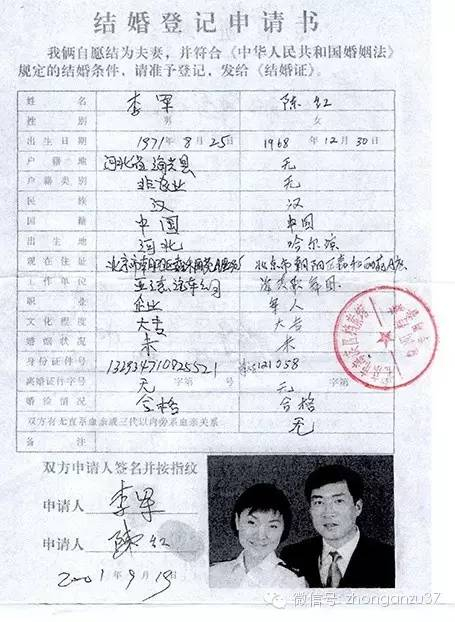 结婚登记申请书
我俩自愿结为夫妻，并符合《中华人民共和国婚姻法》
规定的结婚条件，请准予登记，发给《结婚证》。
姓名 李军 陈红
性别 男 女
出生日期 1971年8月25日 1968年12月30日
户籍地 河北省 县 无
户籍类别 非农业 无
民族 汉 汉
国籍 中国 中国
出生地 河北 哈尔滨
现在住址 北京市朝阳区 北京市朝阳区
工作单位 汽车公司
职业 企业 军人
文化程度 大专 大专
婚姻状况 未 未
身份证件号 132934710825521 121058
离婚证件字号 无 字第 号 无 字第 号
婚检情况 合格 合格
双方有无直系血亲或三代以内旁系血亲关系 无
备注
双方申请人签名并按指纹
申请人 李军
申请人 陳红
2001年9月19日
微信号: zhonganzu37